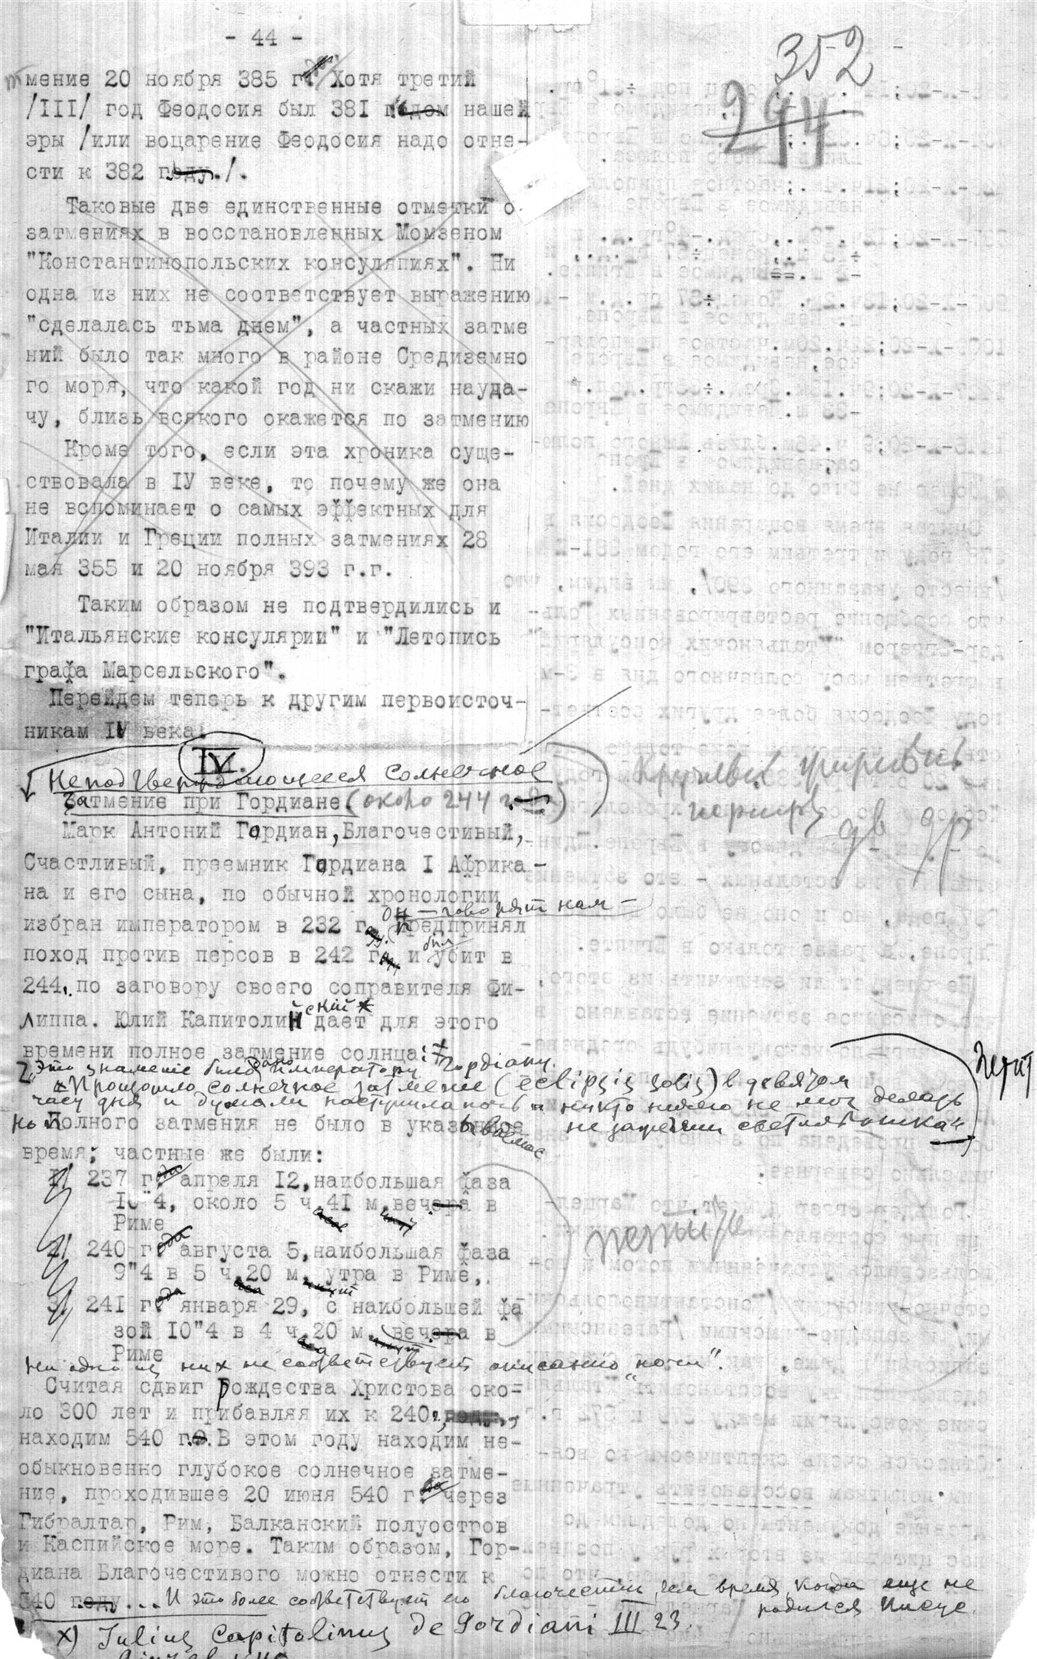 - 44 -
352
244
мение 20 ноября 385 г. Хотя третий
/III/ год Феодосия был 381 годом нашей
эры /или воцарение Феодосия надо отне-
сти к 382 году./.
Таковые две единственные отметки о
затмениях в восстановленных Момзеном
"Константинопольских консуляпиях". Ни
одна из них не соответствует выражению
"сделалась тьма днем", а частных затме
ний было так много в районе Средиземно
го моря, что какой год ни скажи науда-
чу, близь всякого окажется по затмению
Кроме того, если эта хроника суще-
ствовала в IУ веке, то почему же она
не вспоминает о самых эффектных для
Италии и Греции полных затмениях 28
мая 355 и 20 ноября 393 г.г.
Таким образом не подтвердились и
"Итальянские консулярии" и "Летопись
графа Марсельского".
Перейдем теперь к другим первоисточ-
никам IV века.
IV.
Неподтверждающееся солнечное
Затмение при Гордиане (около 244 г.)
Марк Антоний Гордиан, Благочестивый,
Счастливый, преемник Гордиана I Африка-
на и его сына, по обычной хронологии
избран императором в 232 г. Он — говорят нам — предпринял
поход против персов в 242 г. и был убит в
244, по заговору своего соправителя Фи-
липпа. Юлий Капитолийский * дает для этого
времени полное затмение солнца:
"Это знамение было дано императору Гордиану.
Произошло солнечное затмение (eclipsis solis) в девятом
часу дня и думали наступила ночь и никто ничего не мог делать
не зажегши светильника"
Но полного затмения не было в указанное
время; частные же были:
1/ 237 г. апреля 12, наибольшая фаза
10"4, около 5 ч. 41 м. вечера в
Риме
2/ 240 г. августа 5, наибольшая фаза
9"4 в 5 ч. 20 м. утра в Риме,
3/ 241 г. января 29, с наибольшей фа
зой 10"4 в 4 ч. 20 м. вечера в
Риме
Ни одно из них не соответствует описанию "ночи".
Считая сдвиг Рождества Христова око-
ло 300 лет и прибавляя их к 240,
находим 540 г. В этом году находим не-
обыкновенно глубокое солнечное затме-
ние, проходившее 20 июня 540 г. через
Гибралтар, Рим, Балканский полуостров
и Каспийское море. Таким образом, Гор-
диана Благочестивого можно отнести к
540 году... И это более соответствует его благочестию, чем время, когда еще не
родился Иисус.
х) Julius Capitolinus de Gordiani III 23.
петит
петит